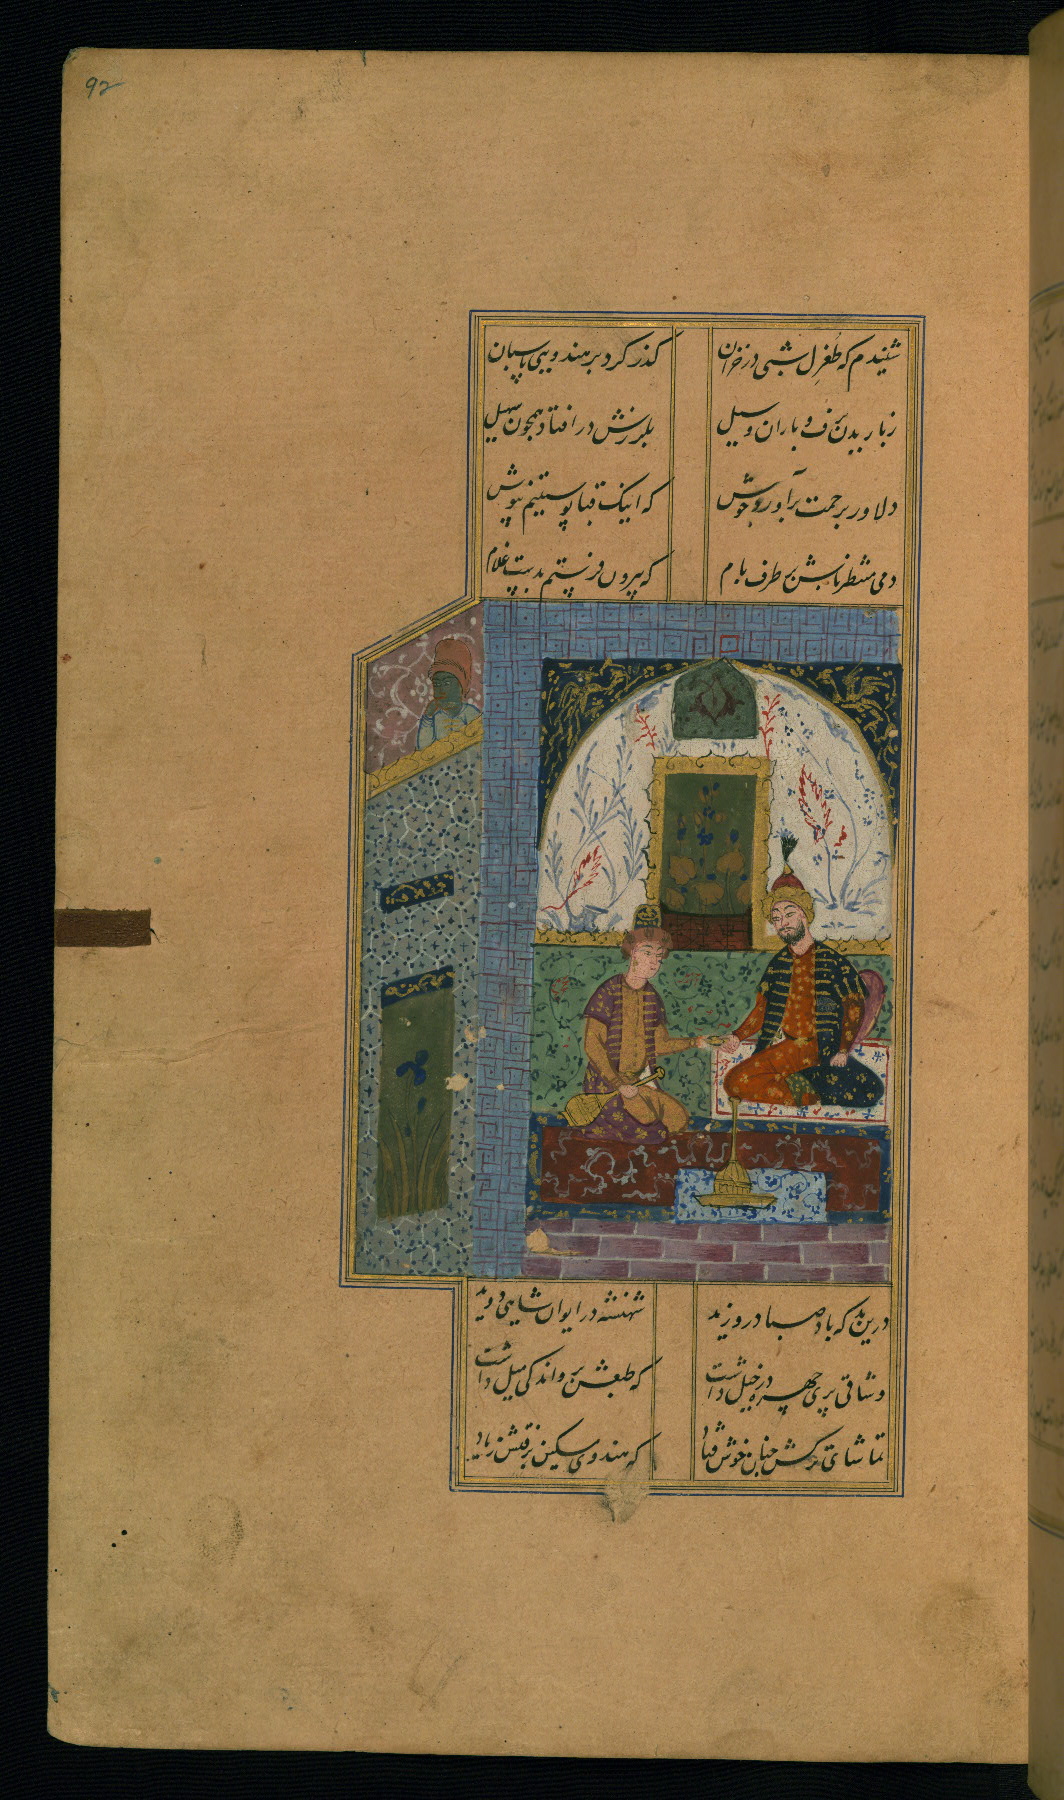 92
شنیدم که طغرل شبی در خزان
گذر کرد بر هندویی پاسبان
ز باریدن برف و باران و سیل
بلرزش در افتاد همچون سهیل
دلاور برحمت برآورد جوش
که اینک قبا پوستینم بپوش
دمی منتظر باش بر طرف بام
که بیرون فرستم بدست غلام
درین بد که باد صبا در وزید
شهنشه در ایوان شاهی دوید
وشاقی پری چهره در خیل داشت
که طبعش برو اندکی میل داشت
تماشای ترکش چنان خوش فتاد
که هندوی مسکین برفتش ز یاد